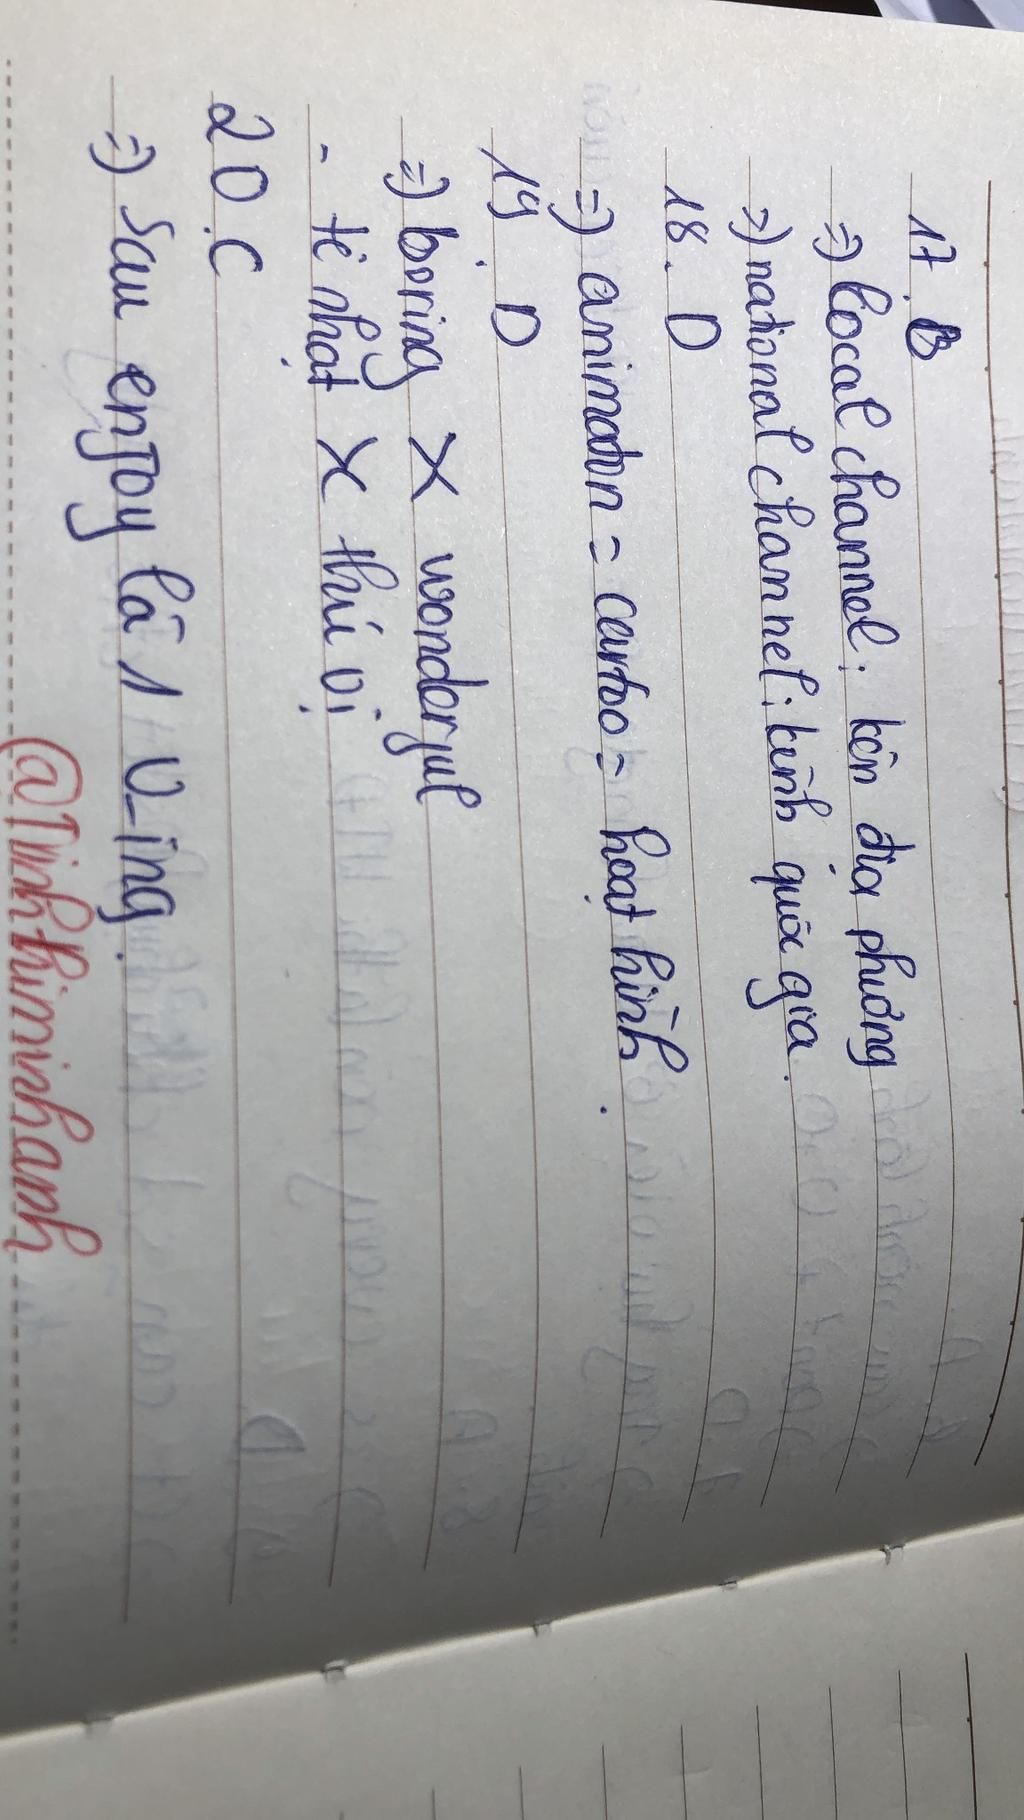 17. B
=) local channel: kên địa phương
=) national channel: kênh quốc gia.
18. D
=) animaton = cartoo = hoạt hình
19. D
=) boring X wonderful
- tẻ nhạt X thú vị
20. C
=) Sau enjoy là 1 V_ing
@Tinhthiminhanh